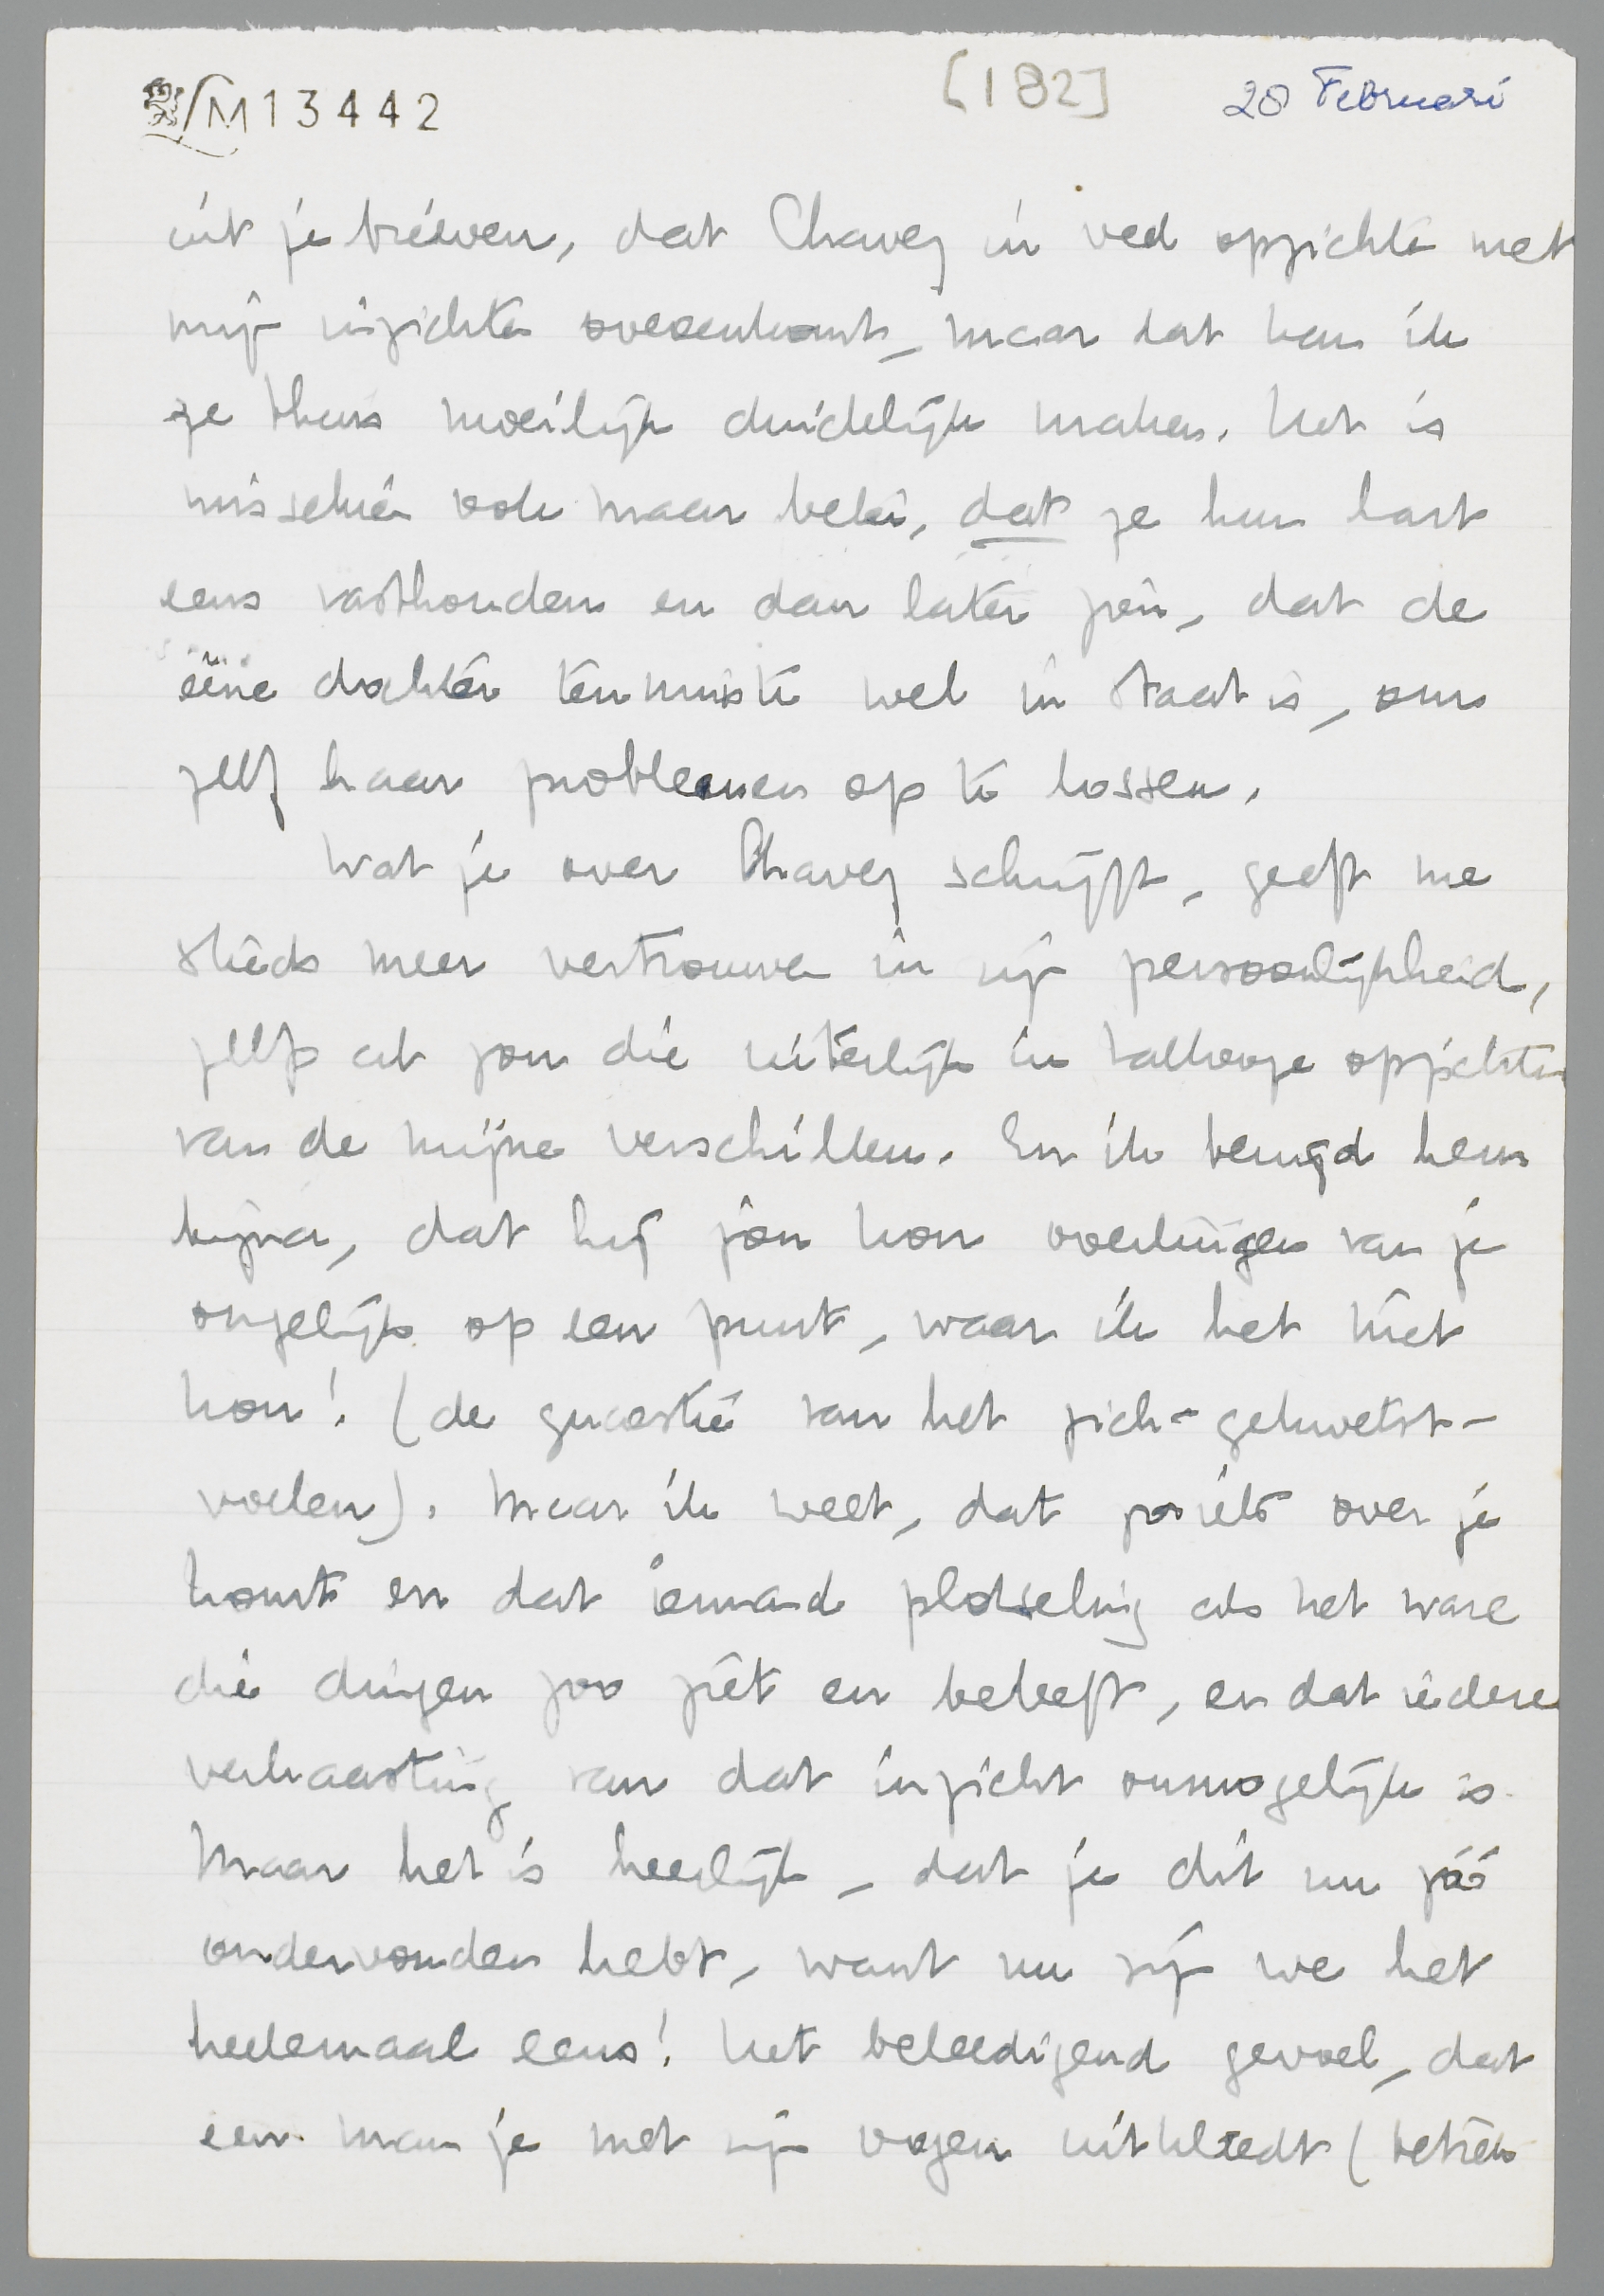 M13442 [182] 20 Februari
uit je brieven, dat Chavez in veel opzichte met
mijn inzichte overeenkomt, maar dat kan ik
ze thuis moeilijk duidelijk maken. Het is
misschien ook maar beter, dat ze hun hart
eens vasthouden en dan later zien, dat de
eéne dochter tenminste wel in staat is, om
zelf haar problemen op te lossen.
Wat je over Chavez schrijft, geeft me
steeds meer vertrouwen in zijn persoonlijkheid,
zelfs al zou die uiterlijk in tallooze opzichten
van de mijne verschillen. En ik benijd hem
bijna, dat hij jou kon overtuigen van je
ongelijk op een punt, waar ik het niet
kon! (de quaestie van het zich-gekwetst-
voelen). Maar ik weet, dat zoiets over je
komt en dat iemand plotseling als het ware
die dingen zoo ziet en beleeft, en dat iedere
verhaasting van dat inzicht onmogelijk is.
Maar het is heerlijk, dat je dit nu zóó
ondervonden hebt, want nu zijn we het
heelemaal eens! Het beleedigend gevoel, dat
een man je met zijn oogen uitkleedt (betrek